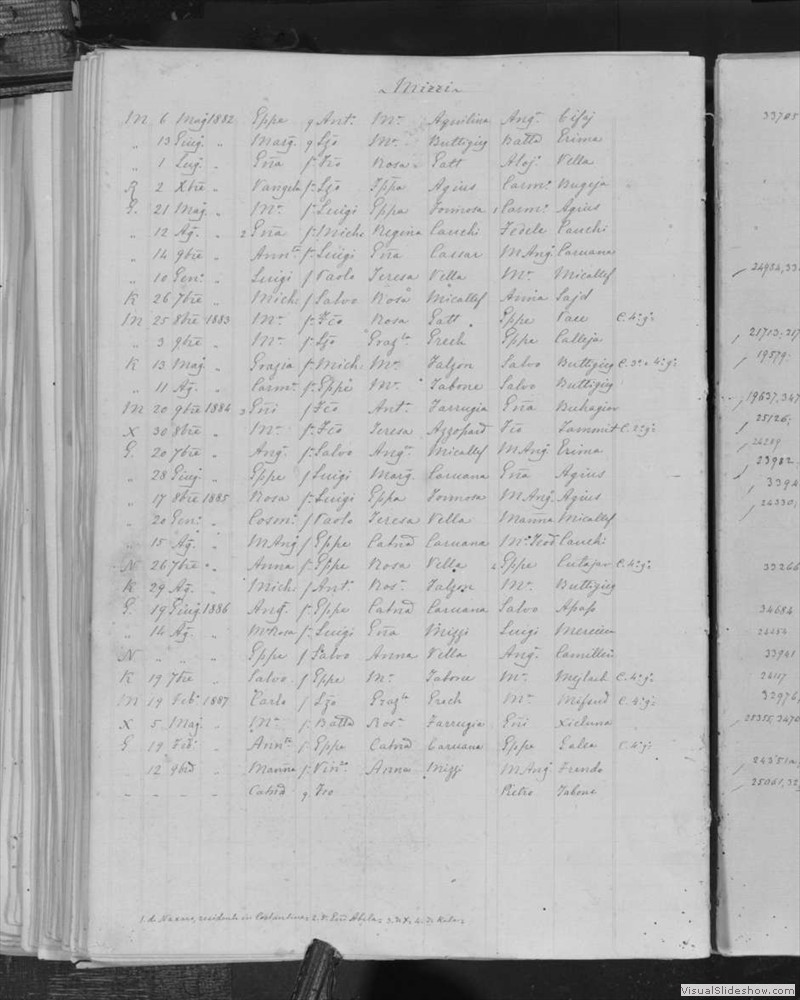 Mizzi
M 6 Mag 1882 Eppe q Ant. Mª Aquilina Ang.
" 13 Giug. " Marg. q Lzo Mª Buttigieg Batta Erima
" 1 Lug. " Gña f. Fco Rosa Galt Aloj. Vella
R 2 Xbre " Vangela f. Lzo Eppa Agius Carm. Bugeja
G. 21 Mag. " Mª f. Luigi Eppa Formosa 1 Carm. Agius
" 12 Ag. " 2 Gña f. Mich. Regina Cauchi Fedele Cauchi
" 14 9bre " Annta f. Luigi Gña Cassar M Ang. Caruana
" 10 Gen. " Luigi f Paolo Teresa Vella Mª Micallef
K 26 7bre " Mich. f Salvo Rosa Micallef Anna Sajd
M 25 8bre 1883 Mª f. Fco Rosa Galt Eppe Pace C. 4. g.
" 3 9bre " Mª f. Lzo Graz. Grech Eppa Calleja
K 13 Mag. " Grazia f. Mich. Mª Falzon Salvo Buttigieg C. 3. e 4. g.
" 11 Ag. " Carm. f. Eppe Mª Tabone Salvo Buttigieg
M 20 9bre 1884 3 Gñi f Fco Ant. Farrugia Gña Buhagiar
X 30 8bre " Mª f. Fco Teresa Azzopard Fco Tammut C. 2. g.
G. 20 7bre " Ang. f. Salvo Ang. Micallef M Ang. Erima
" 28 Giug. " Eppe f Luigi Marg. Caruana Gña Agius
" 17 8bre 1885 Rosa f. Luigi Eppa Formosa M Ang. Agius
" 20 Gen. " Cosm. f Paolo Teresa Vella Marina Micallef
" 15 Ag. " M Ang. f Eppe Catnd Caruana Mª Teod Cauchi
N 26 7bre " Anna f. Eppe Rosa Vella 4 Eppe Cutajar C. 4. g.
K 29 Ag. " Mich. f Ant. Ros. Falzon Mª Buttigieg
G. 19 Giug. 1886 Ang. f. Eppe Catnd Caruana Salvo Apap
" 14 Ag. " Mª Rosa f. Luigi Gña Mizzi Luigi Mercieca
N " " " Eppe f Salvo Anna Vella Ang. Camilleri
K 19 7bre " Salvo f Eppe Mª Tabone Mª Mejlach C. 4. g.
M 19 Feb. 1887 Carlo f Lzo Graz. Grech Mª Mifsud C. 4. g.
X 5 Mag. " Mª f. Batta Ros. Farrugia Gñi Xicluna
G 19 Feb. " Annta f. Eppe Catnd Caruana Eppe Galea C. 4. g.
12 9bre Marina f. Vin. Anna Mizzi M Ang. Frendo
Catnd q Fco Pietro Tabone
1. di Nasciro, residente in Costantina 2. V. Gña Abela 3. di X. 4. di Kala
33705
24984,334
21713.217
19579.
19637,347
25126.
24209
23902
3394
24330
33266
34684
24454
33941
24117
32976,
25355,3470
24351a
25061,32
VisualSlideshow.com